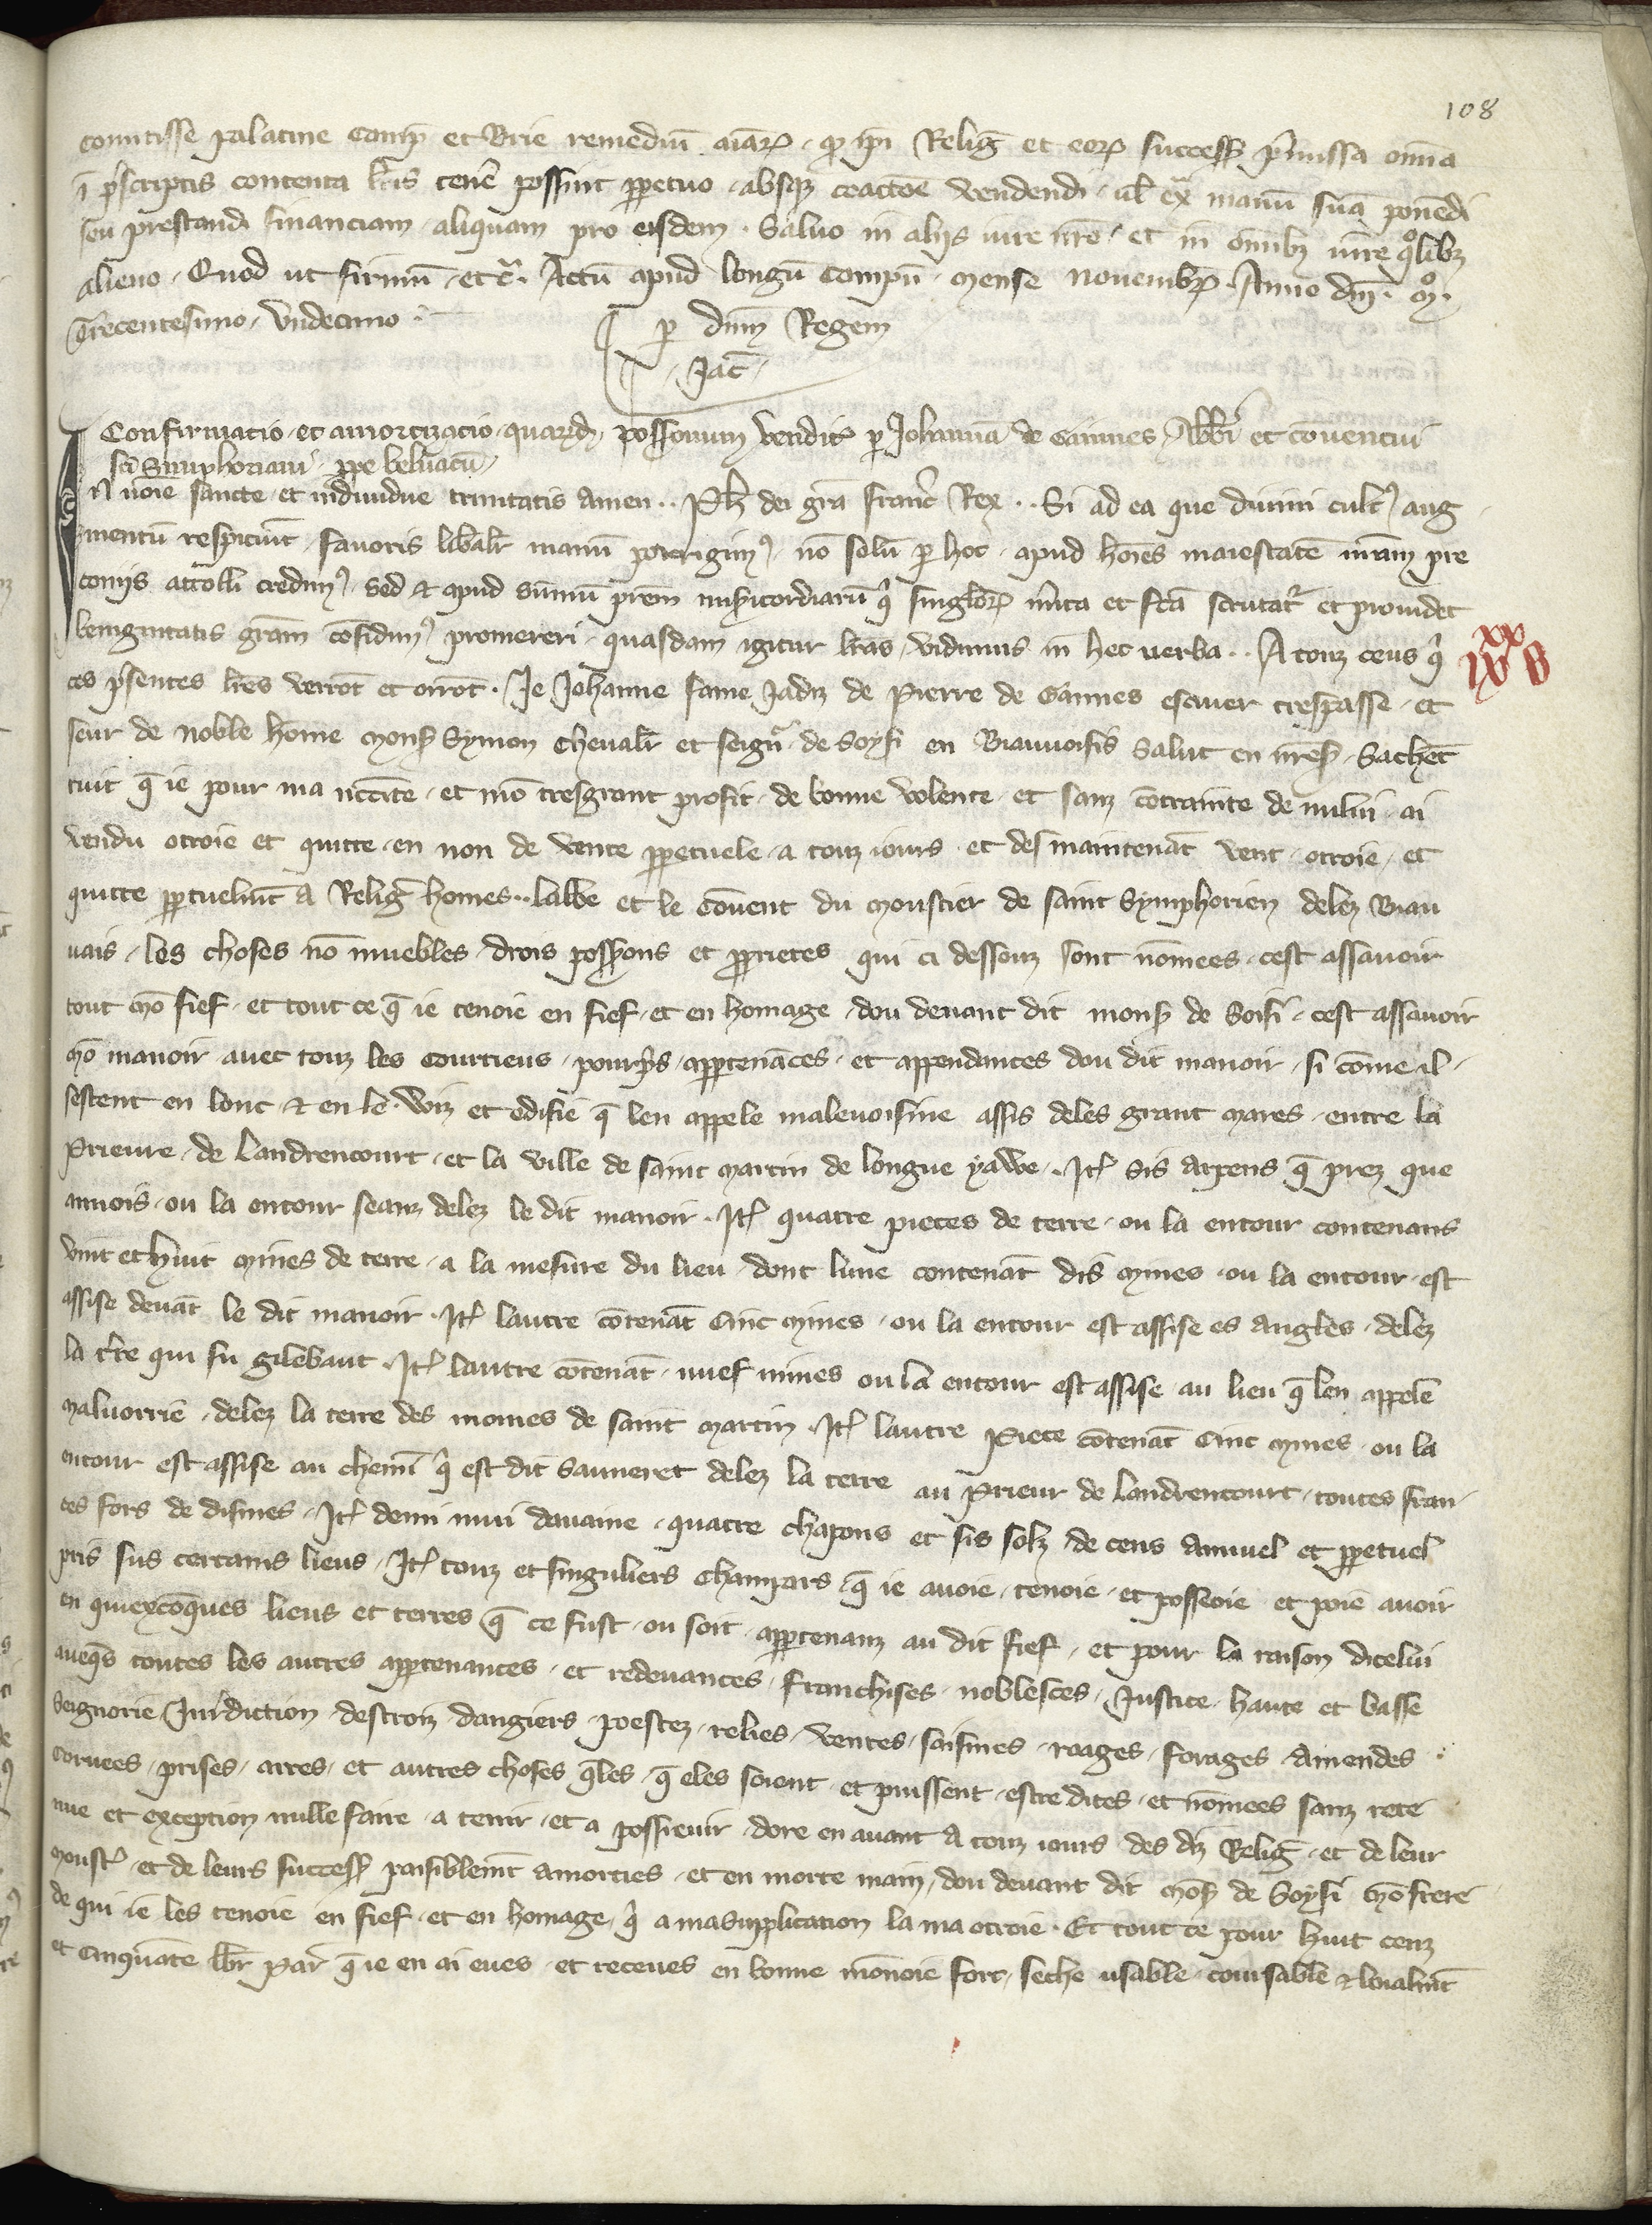 108
comitisse palatine Camp̄ et Brie remediū aīarꝝ . qd ip̄i Religꝭ et eorꝝ successꝭ p̄missa om̄ia
ī p̄scriptis contenta lr̄is tenē possint ꝑpetuo . absqꝫ coactōe vendendi . ul̄ ext̄ manū suā ponēdi
seu prestandi financiam . aliquam pro eisdem . Saluo in alijs iure nr̄o . et in om̄ibꝫ iure qͦlibꝫ
alieno . Quod ut firmū . etc̄ . Actū apud longū Compū . mense nouembrꝭ . Anno dn̄i . mͦ .
Trecentesimo . vndecimo .
ꝑ dn̄m Regem
Jac̄
Confirmatio et amortizacio quarūdꝭ possonum venditꝭ ꝑ Johannā de Gannes Abb̄i et conuentui
sc̄i Simphoriani ꝓpe beluacū
In noīe sancte et indiuidue trinitatis amen . . Ph̄ dei gr̄a franc̄ Rex . . Si ad ea que diuini cultꝰ aug
mentū respiciūt . fauoris lib̄alr̄ manū porrigimꝰ . nō solū ꝑ hoc . apud hōies maiestatē nr̄am pre
conijs attolli credimꝰ . sed & apud sūmū pr̄em mis̄icordiarū qͥ singlorꝝ mīta et fc̄a scrutatꝰ et prouidet
benignitatis gr̄am cōfidimꝰ promereri . quasdam igitur lr̄as vidimus in hec uerba . . A touz ceus qͥ
ces p̄sentes lr̄es verrōt et orrōt . Je Johanne fame Jadiz de Pierre de Gannes escuier trespasse . et
seur de noble hōme monsꝭ Symon Cheualr̄ et seignͬ de Soysi en Biauuoisis Salut en nr̄esꝭ . Sachēt
tuit q̄ ie pour ma nccīte . et mō tresgrant profit . de bonne volente . et sanz cōtrainte de nului . ai
vendu otroie et quitte . en non de vente ꝑpetuele . a touz iours . et des maintenāt vent . otroie . et
quitte ꝑpetuelmt̄ a Religꝭ homes . . labbe et le Couent du moustier de saint Symphorien delez Biau
uais . les choses nō muebles . drois poss̄ions et ꝓprietes qui ci dessouz sont nōmees . cest assauoir
tout mō fief . et tout ce q̄ ie tenoie en fief . et en homage . dou deuant dit monsꝭ de Soisi . cest assauoir
mō manoir auec touz les courtieus . pourp̄s . appartenāces . et appendances dou dit manoir . si cōme il .
sestent en lonc & en le . wiz et edifie q̄ len appele maleuoisine assis deles grant mares . entre la
Prieure . de Landrencourt . et la ville de saint Martin de longue yawe . . Jtꝭ sis arpens q̄ prez que
annois . ou la entour seanz delez le dit manoir . Jtꝭ quatre pieces de terre . ou la entour contenans
vint et huit mines de terre . a la mesure du lieu . dont lune contenāt dis mines . ou la entour . est
assise deuāt le dit manoir . Jtꝭ lautre cōtenāt Cinc mines . ou la entour est assise es angles . delez
la tr̄re qui fu gilebaut . Jtꝭ lautre cōtenāt . nuef mines ou la entour est assise au lieu q̄ len appele
maluorrie . delez la terre des moines de saint Martin . Jtꝭ lautre Piece cōtenāt Cinc mines . ou la
entour est assise au chemī qͥ est dit Sauneret delez la terre au Prieur de Landrencourt . toutes fran
ces fors de dismes . Jtꝭ demi mui dauaine . quatre chapons et sis solz . de cens annuel et ꝑpetuel
pris sus certains lieus . Jtꝭ touz et singuliers champars q̄ ie auoie . tenoie . et possoie et poie auoir
en quiexcōques lieus et terres q̄ ce fust . ou soit . appartenanz au dit fief . et pour la raison dicelui
auecqͣs toutes les autres appartenances . et redeuances . franchises . noblesces . Justice . haute et basse
Seignorie Juridiction . destroiz dangiers . poestez . relies . ventes . saisines . roages . forages . amendes .
Coruees . prises . arres . et autres choses qͣles . q̄ eles soient . et puissent . estre dites . et nōmees sanz rete
nue et exception nulle faire . a tenir . et a possieuir . dore en auant a touz iours des diz Religꝭ . et de leur
moustꝭ . et de leurs successꝭ paisiblemt̄ amorties . et en morte main . dou deuant dit mōsꝭ de Soysi mō frere
de qui ie les tenoie en fief . et en homage . qͥ a ma supplication la ma otroie . Et tout ce pour huit cenz
et cinquāte lb̄r par̄ q̄ ie en ai eues . et receues en bonne mōnoie fort . seche usable . coursable & loialmt̄